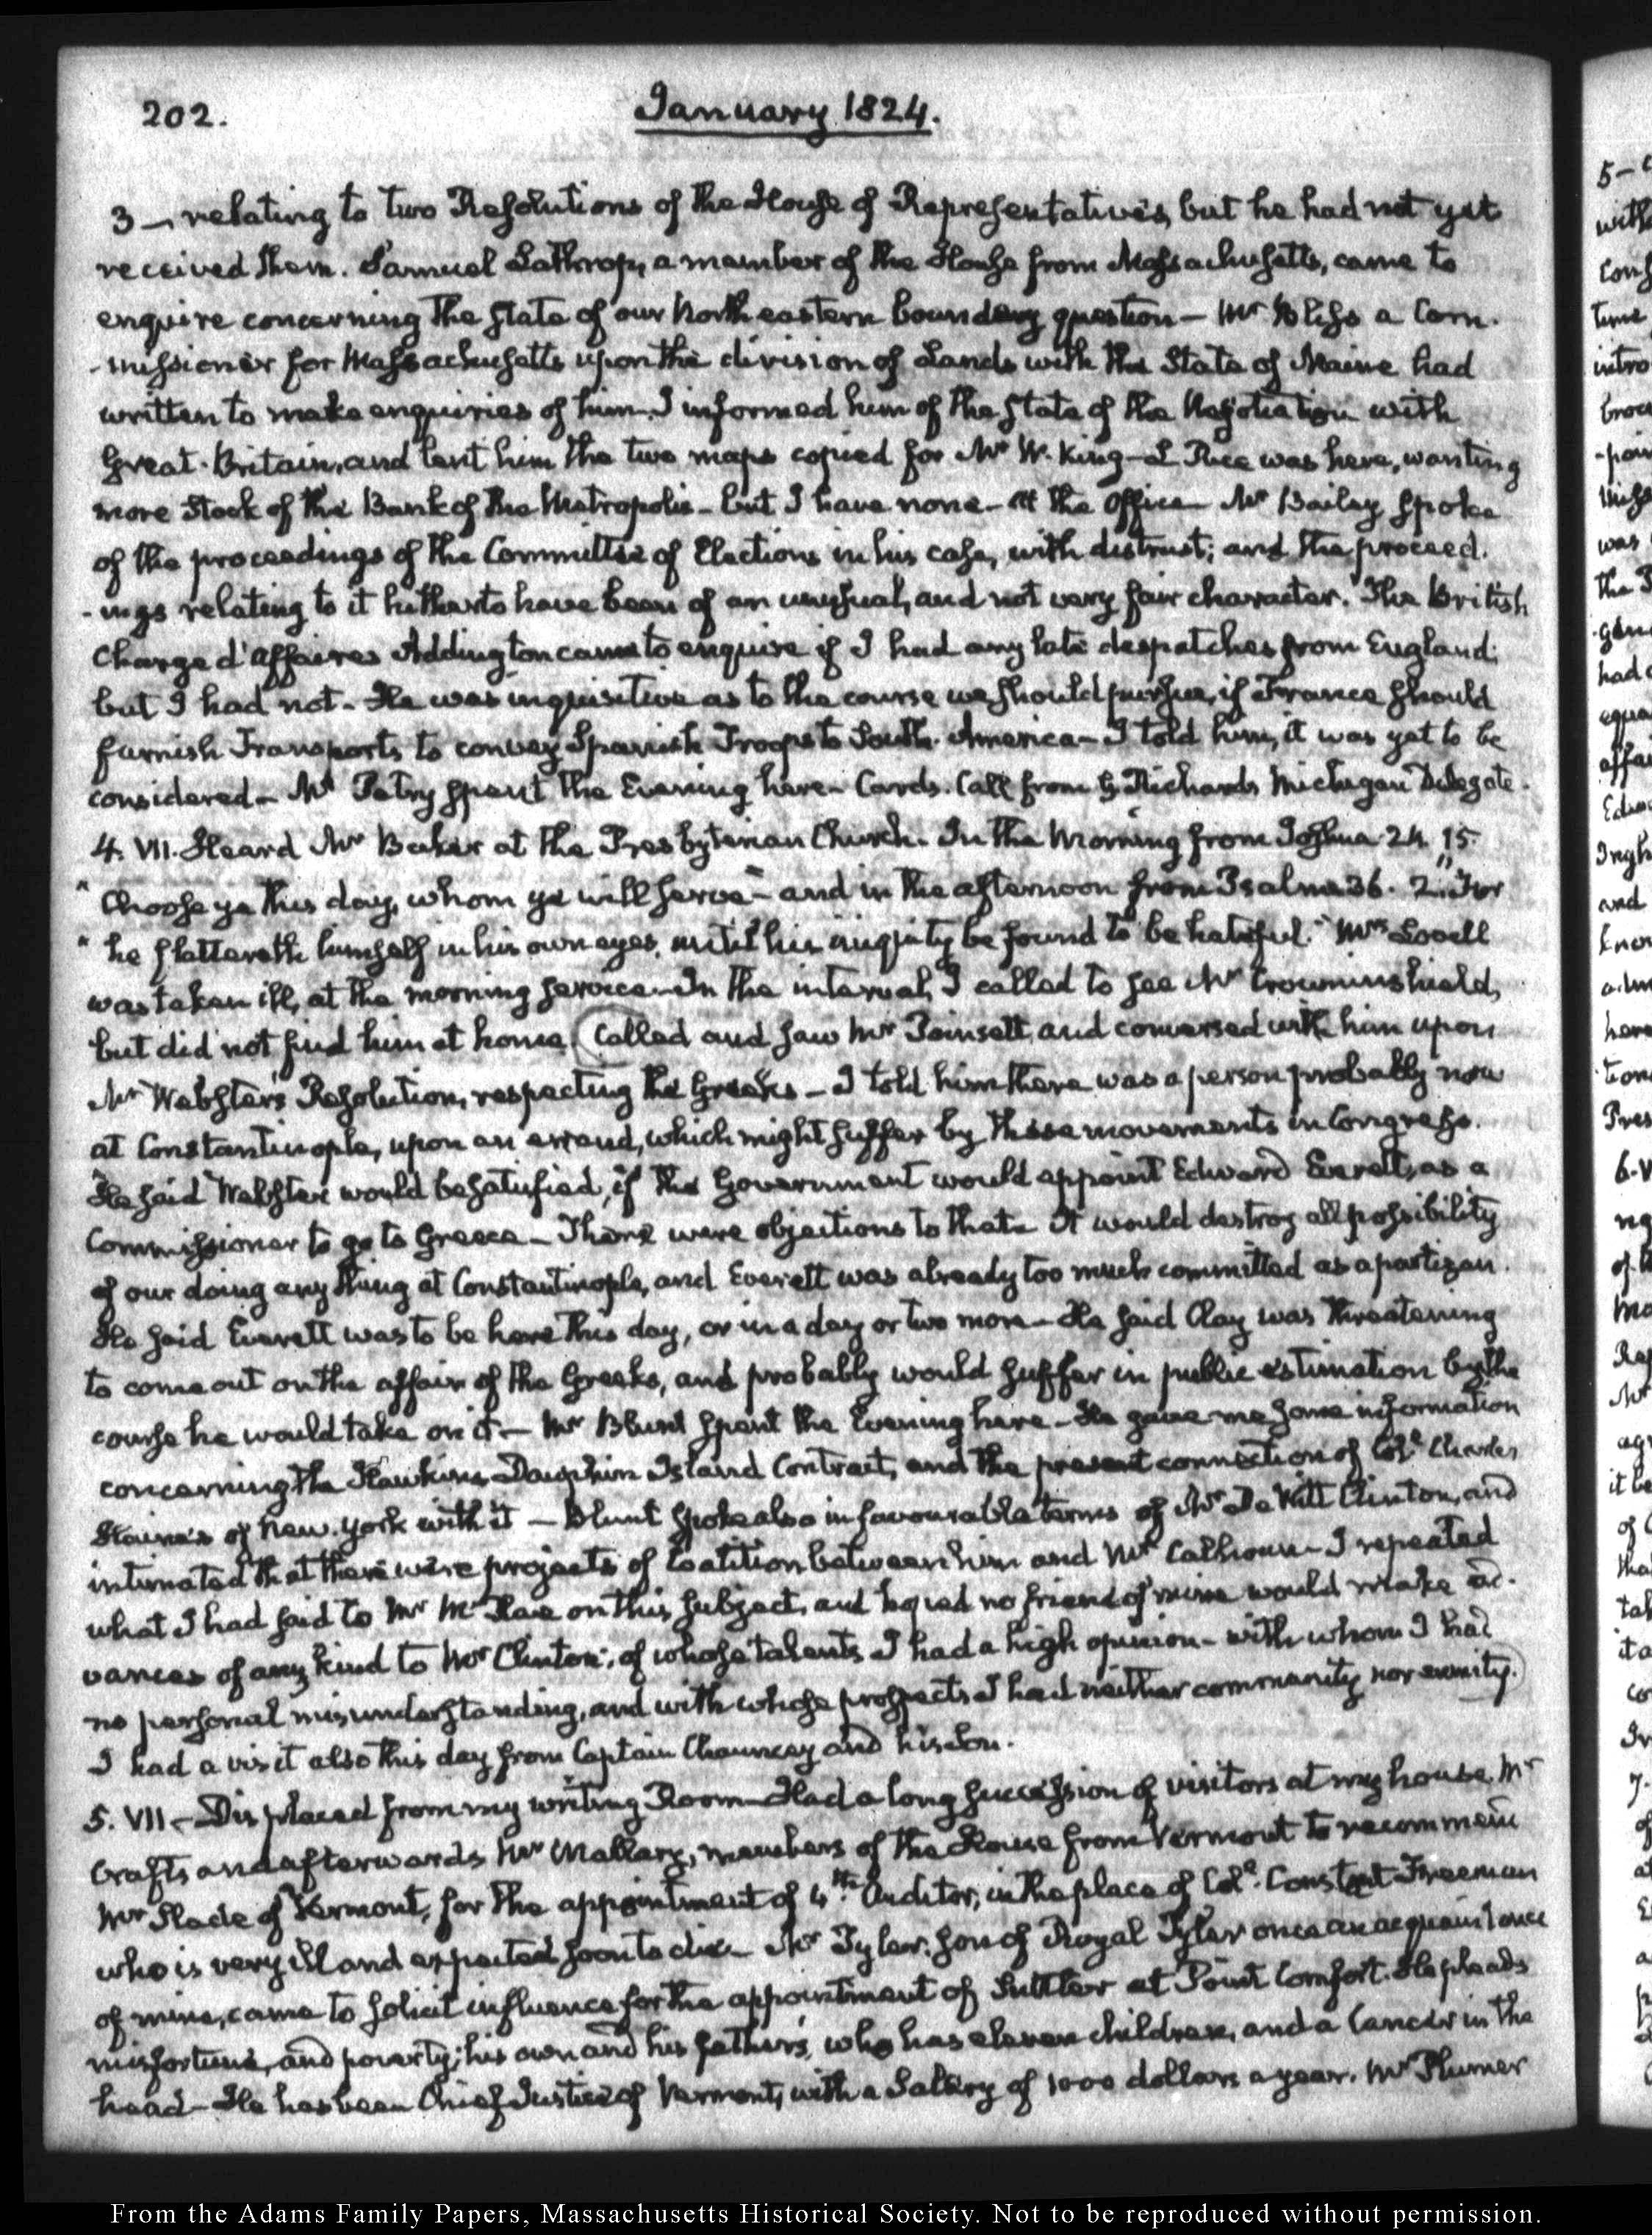 202.
January 1824.
3 — relating to two Resolutions of the House of Representatives, but he had not yet
received them. Samuel Lathrop, a member of the House from Massachusetts, came to
enquire concerning the state of our North eastern boundary question — Mr Bliss a Com-
-missioner for Massachusetts upon the division of Lands with the State of Maine had
written to make enquiries of him. I informed him of the state of the Negotiation with
Great-Britain, and lent him the two maps copied for Mr W. King — L Rice was here, wanting
more Stock of the Bank of the Metropolis — but I have none — At the Office Mr Bailey spoke
of the proceedings of the Committee of Elections in his case, with distrust; and the proceed-
-ings relating to it hitherto have been of an unusual, and not very fair character. The British
Chargé d'Affaires Addington came to enquire if I had any late despatches from England;
but I had not — He was inquisitive as to the course we should pursue, if France should
furnish Transports to convey Spanish Troops to South-America — I told him, it was yet to be
considered — Mr Petry spent the Evening here — Cards. Call from G. Richards Michigan Delegate.
4. VII. Heard Mr Baker at the Presbyterian Church. In the Morning from Joshua 24. 15.
"Choose ye this day, whom ye will serve" — and in the afternoon from Psalms 36. 2. "For
"he flattereth himself in his own eyes, until his iniquity be found to be hateful." Mrs Lovell
was taken ill, at the morning service — In the interval, I called to see Mr Crowninshield,
but did not find him at home. (Called and saw Mr Poinsett, and conversed with him upon
Mr Webster's Resolution, respecting the Greeks — I told him there was a person probably now
at Constantinople, upon an errand, which might suffer by these movements in Congress.
He said Webster would be satisfied, if the Government would appoint Edward Everett, as a
Commissioner to go to Greece — There were objections to that — It would destroy all possibility
of our doing any thing at Constantinople, and Everett was already too much committed as a partizan.
He said Everett was to be here this day, or in a day or two more — He said Clay was threatening
to come out on the affair of the Greeks, and probably would suffer in public estimation by the
course he would take on it — Mr Blunt spent the Evening here — He gave me some information
concerning the Hawkins Dauphin Island Contract, and the present connection of Coll Charles
Haines of New-York with it — Blunt spoke also in favourable terms of Mr De Witt Clinton, and
intimated that there were projects of Coalition between him and Mr Calhoun — I repeated
what I had said to Mr McRae on this subject, and hoped no friend of mine would make ad-
vances of any kind to Mr Clinton; of whose talents I had a high opinion — with whom I had
no personal misunderstanding, and with whose prospects I had neither community nor enmity.)
I had a visit also this day from Captain Chauncey and his Son.
5. VII — Displaced from my writing Room — Had a long succession of visitors at my house. Mr
Crafts and afterwards Mr Mallary, members of the House from Vermont to recommend
Mr Slade of Vermont, for the appointment of 4th Auditor, in the place of Coll. Constant Freeman
who is very ill and expected soon to die — Mr Tyler, son of Royal Tyler once an acquaintance
of mine, came to solicit influence for the appointment of Suttler at Point Comfort. He pleads
misfortune, and poverty; his own and his father's, who has eleven children, and a Cancer in the
head — He has been Chief Justice of Vermont, with a Salary of 1000 dollars a year. Mr Plumer
From the Adams Family Papers, Massachusetts Historical Society. Not to be reproduced without permission.